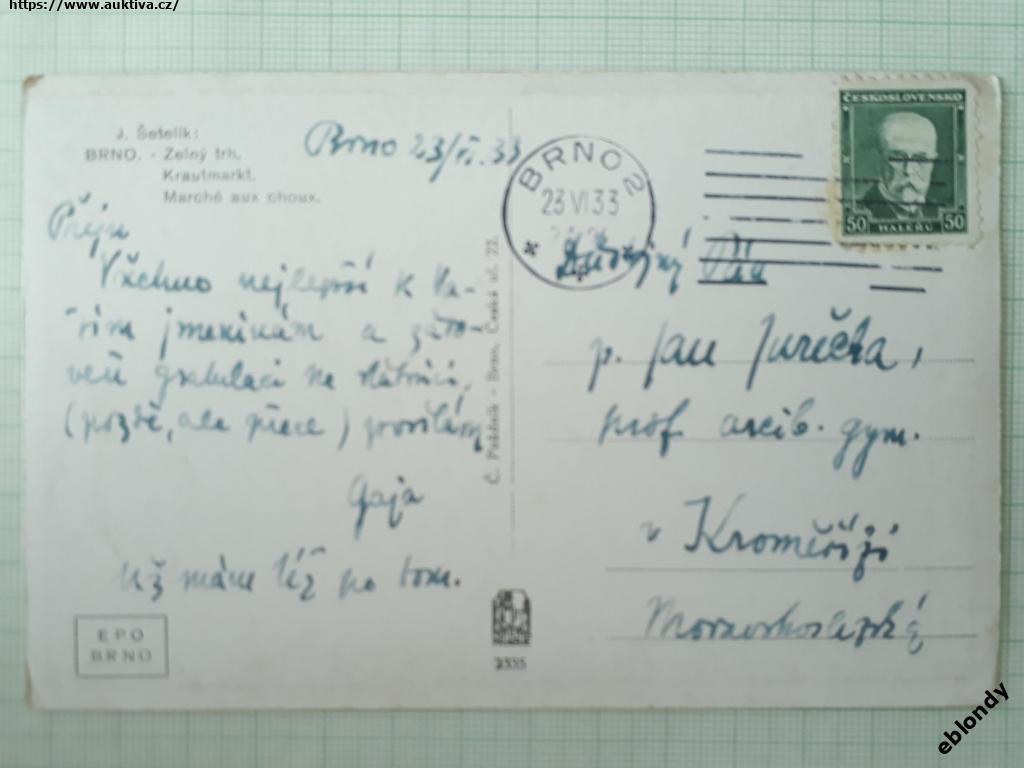 https://www.auktiva.cz/
J. Šetelík:
BRNO. - Zelný trh.
Krautmarkt.
Marché aux choux.
Brno 23/VI.33
BRNO 2
23 VI 33
ČESKOSLOVENSKO
50 HALÉŘŮ 50
Přeju
Všechno nejlepší k Va-
šim jmeninám a záro-
veň gratulaci
(pozdě, ale přece) posílám
Gaja
Už máme též po tom.
Pán
p. Jan Jurečka,
prof. arcib. gym.
v Kroměříži
Moravskoslezská
Brno, Česká ul. 22.
EPO
BRNO
2335
eblondy